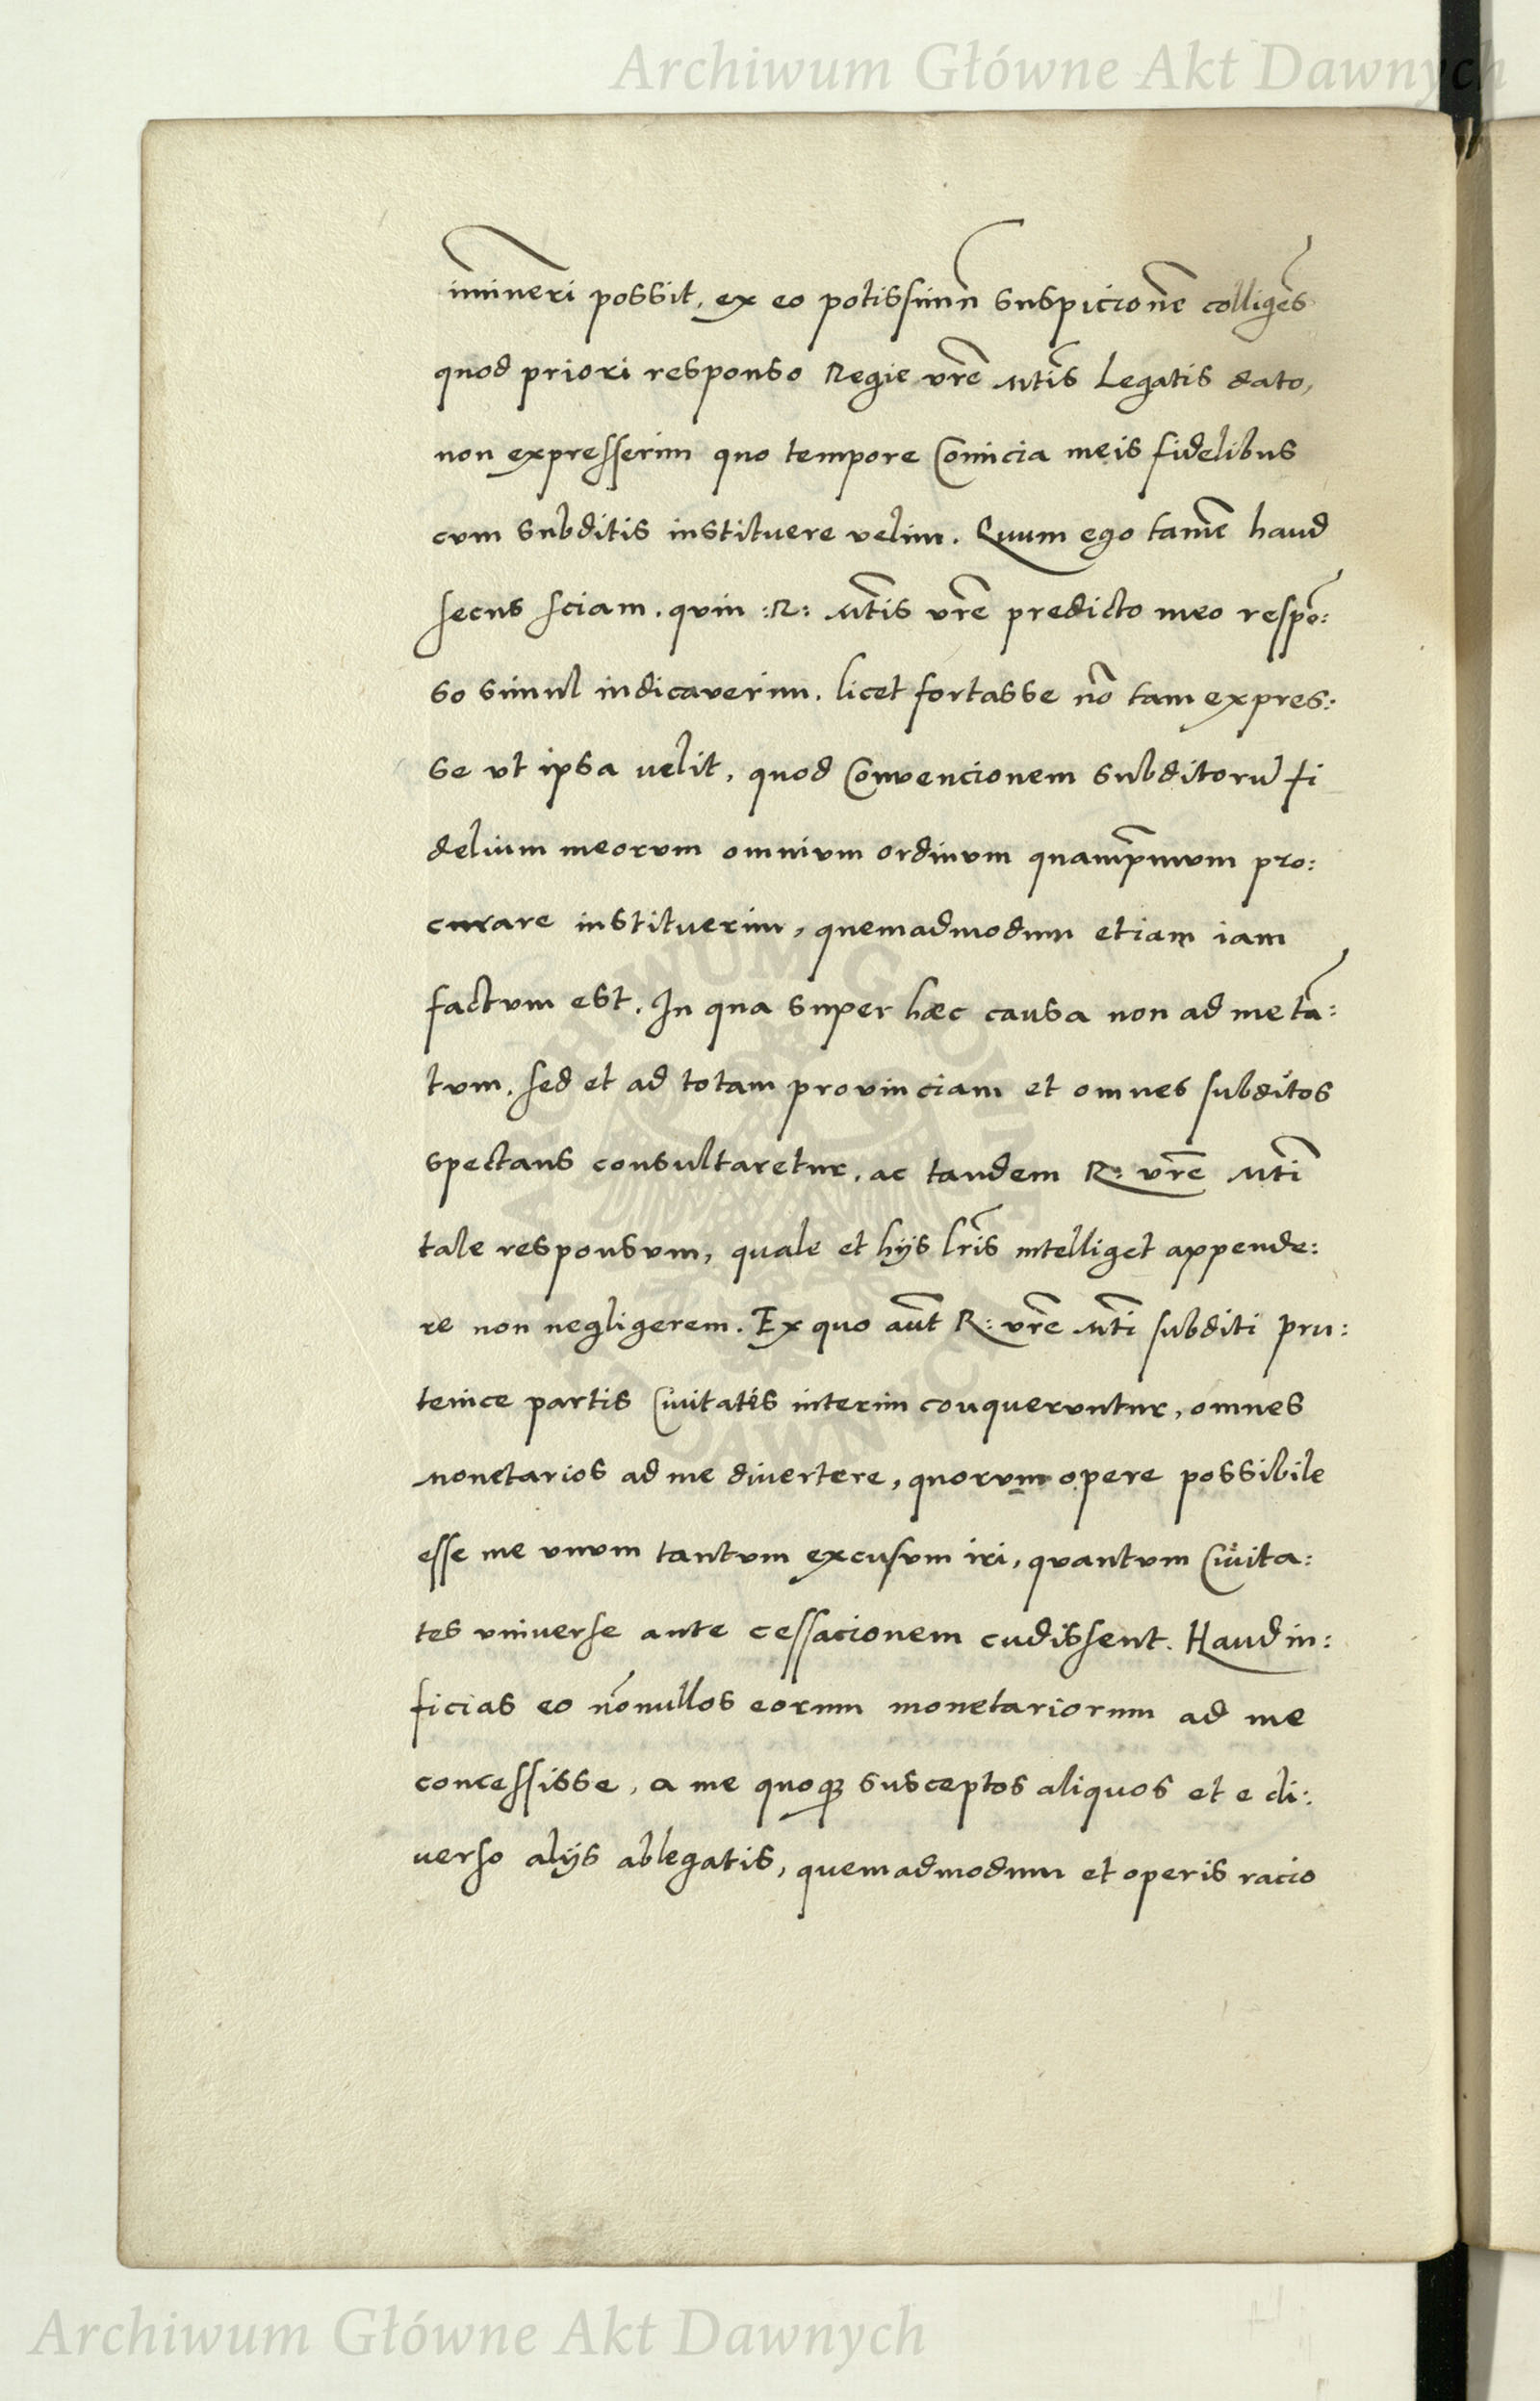 Archiwum Główne Akt Dawnych
im̃ineri possit, ex eo potissimũ suspicionẽ colligẽs
quod priori responso Regie vrẽ Mtĩs Legatis dato,
non expresserim quo tempore Comicia meis fidelibus
cvm subditis instituere velim. Quum ego tamẽ haud
secus sciam. qvin :R: Mtĩs vrẽ predicto meo respõ:
so simul indicaverim. licet fortasse nõ tam expres:
se vt ipsa uelit, quod Convencionem subditorũ fi
delium meorvm omnivm ordinvm quamp̃mvm pro:
curare instituerim, quemadmodum etiam iam
factvm est. In qua super hæc causa non ad me tã:
tvm. sed et ad totam provinciam et omnes subditos
spectans consultaretur, ac tandem R: vrẽ Mtĩ
tale responsvm, quale et hijs lrĩs intelliget appende:
re non negligerem. Ex quo aũt R: vrẽ Mtĩ subditi pru:
tenice partis Civitates interim conquervntur, omnes
monetarios ad me divertere, quorvm opere possibile
esse me vnvm tantvm excusvm iri, qvantvm Civita:
tes vniverse ante cessacionem cudissent. Haud in:
ficias eo nõnullos eorum monetariorum ad me
concessisse, a me quoqꝫ susceptos aliquos et e di:
verso alijs ablegatis, quemadmodum et operis racio
ARCHIWUM GŁÓWNE AKT DAWNYCH
Archiwum Główne Akt Dawnych